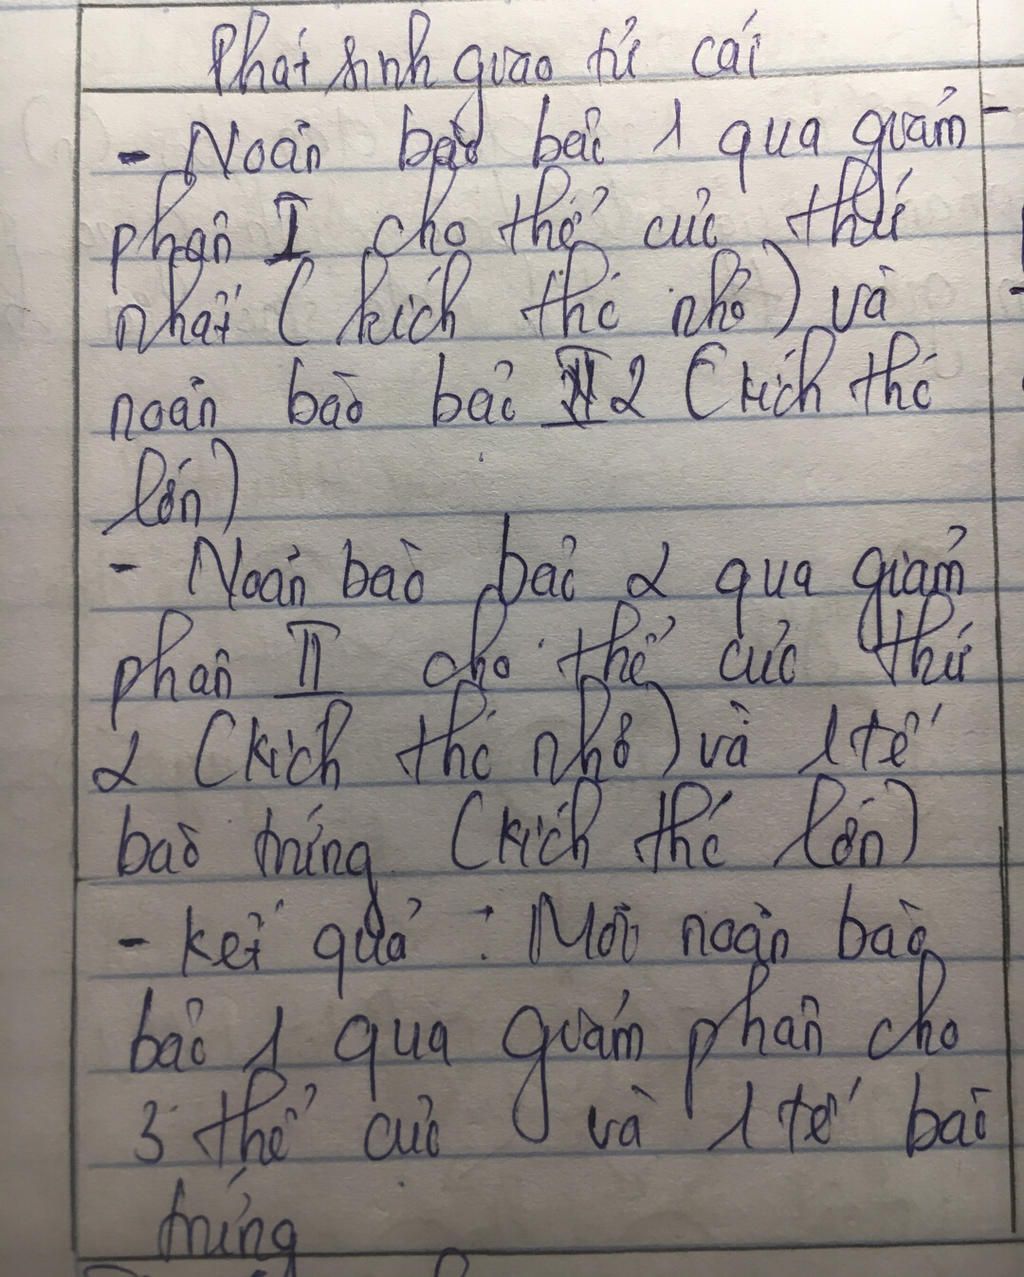 Phát sinh giao tử cái
- Noãn bào bậc 1 qua giảm
phân I cho thể cực thứ
nhất ( kích thc nhỏ ) và
noãn bào bậc 2 ( kích thc
lớn )
- Noãn bào bậc 2 qua giảm
phân II cho thể cực thứ
2 ( kích thc nhỏ ) và 1 tế
bào trứng ( kích thc lớn )
- Kết quả : Mỗi noãn bào
bậc 1 qua giảm phân cho
3 thể cực và 1 tế bào
trứng